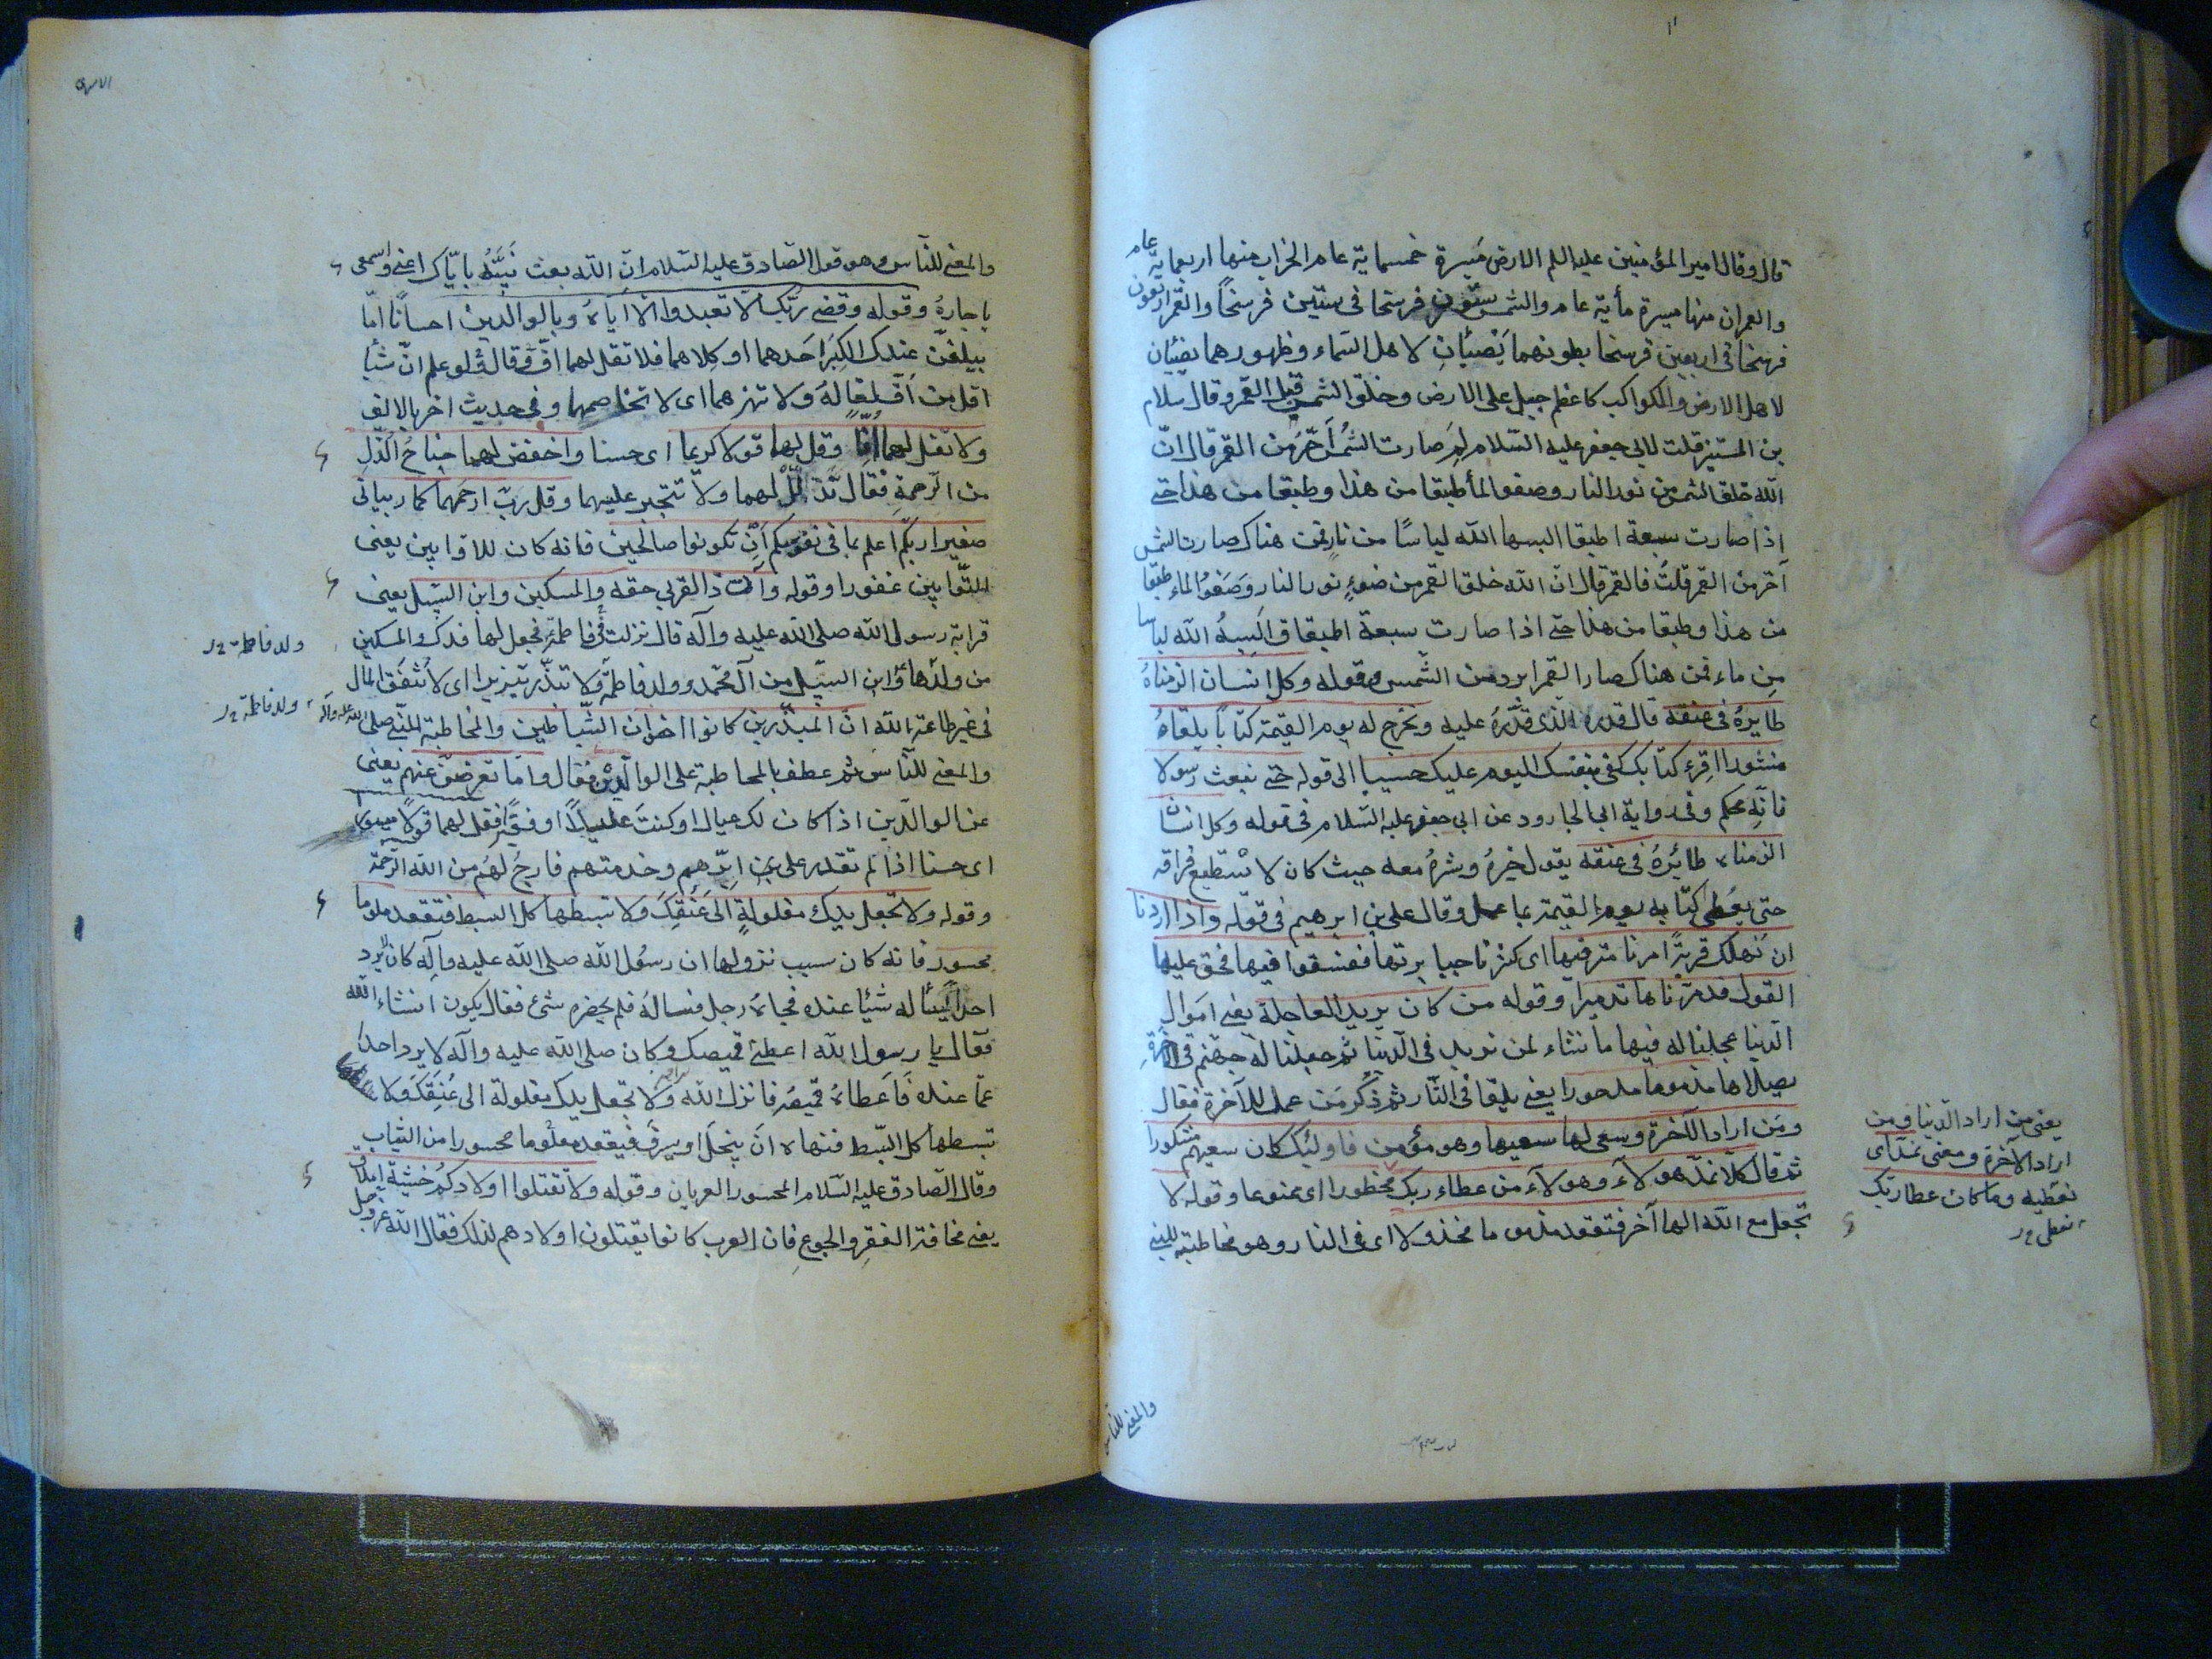 قال وقال امير المؤمنين عليه السلم الارض مسيرة خمسماية عام الخراب منها اربعماية عام
والعمران منها مسيرة مأية عام والشمس ستون فرسخا فى ستين فرسخاً والقمر اربعون
فرسخا فى اربعين فرسخا بطونهما يَضيئانِ لاهل السماء وظهورهما يضيئان
لاهل الارض والكواكب كاعظم جبل على الارض وخلق الشمس قبل القمر وقال سلام
بن المستنير قلت لابى جعفر عليه السّلام لِمَ صارت الشمس اَحَرّ من القمر قال انّ
الله خلق الشمس من نور النار وصفو الماء طبقا من هذا وطبقا من هذا حتى
اذا صارت سبعة اطبقا البسها الله لباسًا من نار فمن هناك صارت الشمس
احرّ من القمر قلتُ فالقمر قال انّ الله خلق القمر من ضوءِ نور النار وَصَفوُ الماء طبقا
من هذا وطبقا من هذا حتى اذا صارت سبعة اطبقاق اَلبسهُ الله لباسا
مِن ماء فمن هناك صار القمر ابرد من الشّمس وقوله وكل انسان الزمناهُ
طايرهُ فى عنقه قال قدره الذى قدّرهُ عليه ونخرج له يوم القيمة كتاباً يلقاهُ
منشورا اقرء كتابك كفى بنفسك اليوم عليك حسيبا الى قوله حتى نبعث رسولا
فانّه محكم وفى رواية ابى الجارود عن ابى جعفر عليه السّلام فى قوله وكل انسان
الزمناه طائرهُ فى عنقه يقول خيرهُ وشرهُ معه حيث كان لا يستطيع فراقه
حتى يعُطى كتابه يوم القيمة بما عمل وقال على بن ابرهيم فى قوله واذا اردنا
ان نُهلك قريةً امرنا مترفيها اى كثرنا جبابرتها ففسقوا فيها فحق عليها
القول فدمّرناها تدميراً وقوله من كان يريد العاجلة يعنى اَموال
الدّنيا عجلنا له فيها ما نشاء لمن نريد فى الدّنيا ثم جعلنا له جهنم فى الاخرة
يصلاها مذموما مدحورا يعنى يلقا فى النّار ثم ذكر مَن عمل للآخرة فقال
ومَن اراد الآخرة وسعى لها سعيها وهو مؤمن فاولئك كان سعيهم مشكورا
ثم قال كلاّ نمدّ هولآء وهولآء من عطاء ربك محظورا اى ممنوعا وقوله لا
تجعل مع الله الها آخر فتقعد مذموما مخذولا اى فى النار وهو مخاطبة للنبى
يعنى من اراد الدّنيا ومن
اراد الآخرة ومعنى نمدّ اى
نعطيه وما كان عطا ربك
والمعنى للناس
والمعنى للنّاس وهو قول الصّادق عليه السّلام انّ الله بعث نبيّهُ بايّاك اعنى واسمعى
يا جارهُ وقوله وقضى ربّك الّا تعبدوا الّا ايّاهُ وبالوالدين احسانًا امّا
يبلغنّ عندك الكِبَر اَحَدهما او كلاهما فلا تقل لهما افّ قال لو علم انّ شيئا
اقل من اَفّ لقاله ولا تنهرهما اى لا تخاصمهما وفى حديث اخر بالالف
ولا تقل لهما افّا وقل لهما قولا كريما اى حسنا واخفض لهما جناحُ الذّلِ
من الرّحمةِ فقال تذلّلْ لهما ولا تتجبر عليهما وقل ربّ ارحمهما كما ربيانى
صغيرا ربّكم اعلم بما فى نفوسكم اَنْ تكونوا صالحين فانه كان للاوابين يعنى
للتّوابين غفورا وقوله وآت ذا القربى حقه والمسكين وابن السّبيل يعنى
قرابة رسول الله صلى الله عليه وآله قال نزلت فى فاطمة فجعل لها فدك والمسكين
من ولدها وابن السّبيل من آل محمّد وولد فاطمة ولا تبذّر تبذيرا اى لا تنفق المال
فى غير طاعة الله انّ المبذّرين كانوا اخوان الشّياطين والمخاطبة للنّبى صلى الله عليه وآله
والمعنى للنّاس ثم عطف بالمخاطبة على الوالدين فقال وامّا تعرضنّ عنهم يعنى
عن الوالدّين اذا كان لك عيال او كنت عليلاً او فقيرً فقل لهما قولًا ميسورا
اى حسنا اذا لم تقدر على برّهم وخدمتهم فارجُ لهُم من الله الرّحمة
وقوله ولا تجعل يدك مغلولةٍ الى عُنُقِكَ ولا تبسطها كل البسط فتقعد ملوما
محسورا فانه كان سبب نزولها ان رسُول الله صلى الله عليه وآلِه كان لا يرد
احدا يسأله شيئا عنده فجاءهُ رجل فسالهُ فلم يحضره شئ فقال يكون انشاء الله
فقال يا رسول الله اعطنى قميصك وكان صلى الله عليه وآله لا يرد احدا
عمّا عنده فَاَعطاهُ قميصُه فانزل الله ولا تجعل يدك مغلولة الى عُنقِكَ ولا
تبسطها كل البّسط فنهاه انَ يبخل او يسرفَ فيقعد ملُوما محسورا من الثياب
وقال الصّادق عليه السّلام المحسور العريان وقوله ولا تقتلوا اولادكُم خشية املاق
يعنى مخافة الفقرِ والجوعِ فان العرب كانوا يقتلون اولادهم لذلك فقال الله عزّ وجل
ولد فاطمة
ولد فاطمة